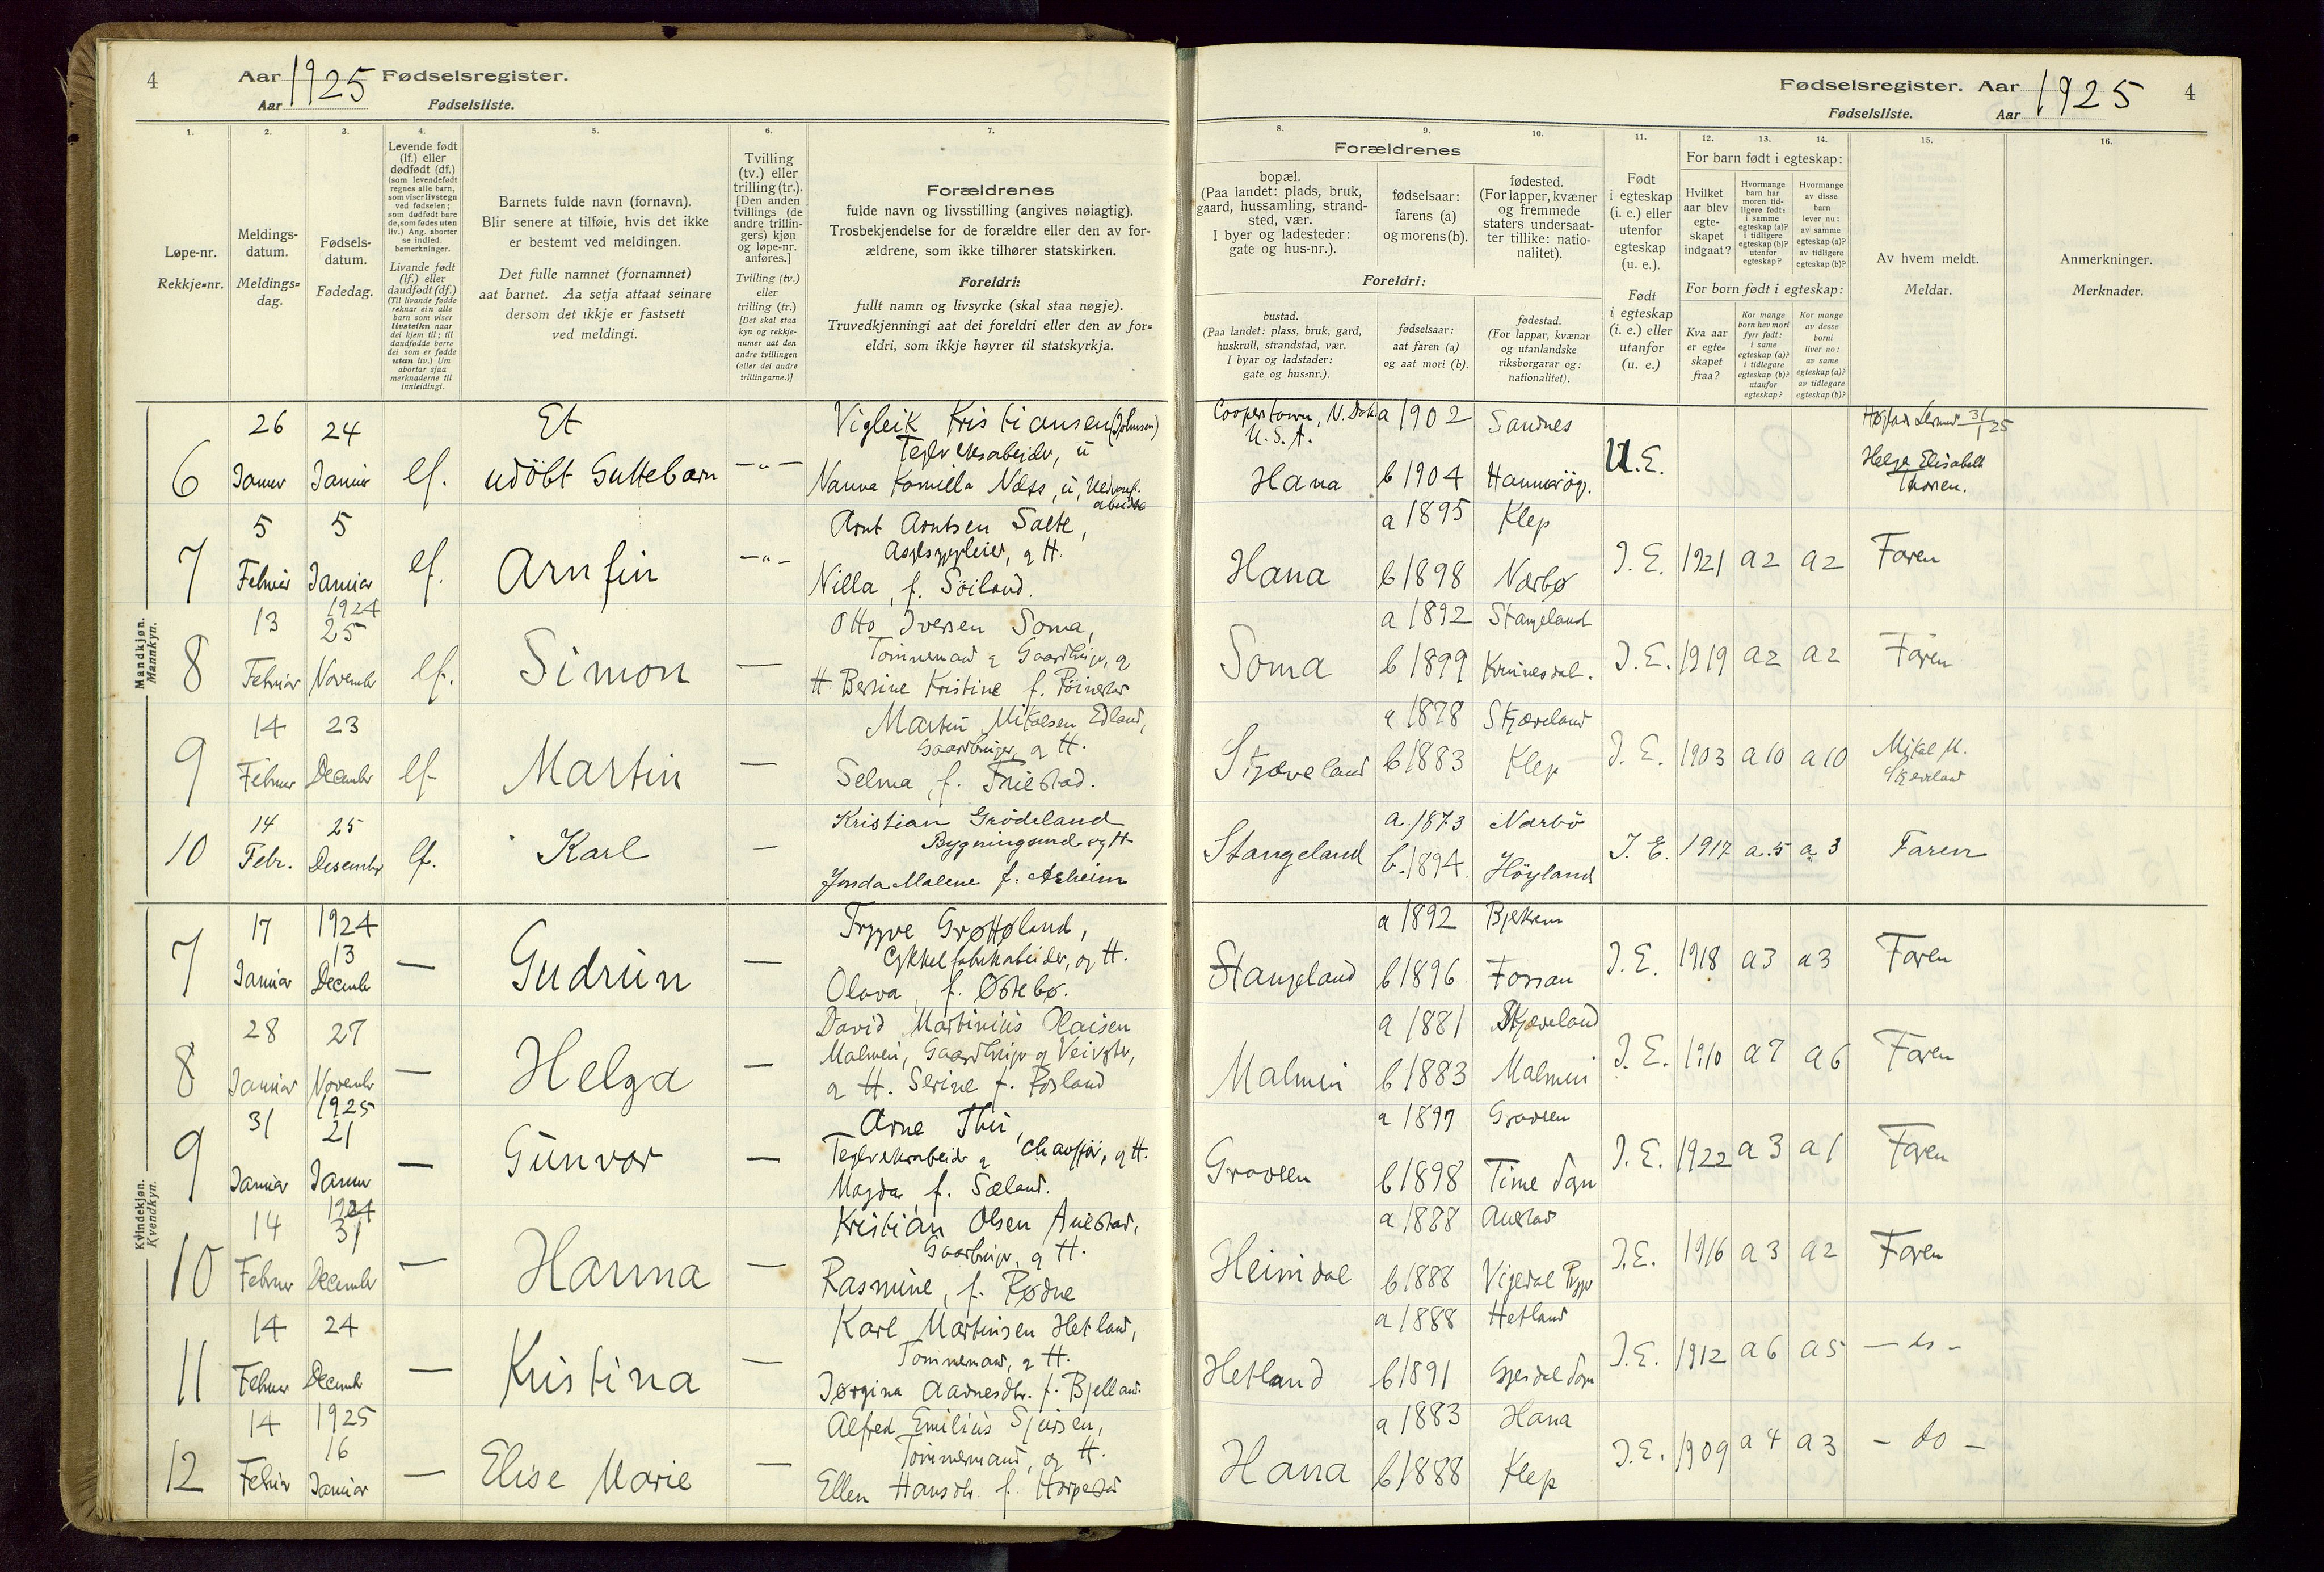 4
Aar 1925 Fødselsregister.
Aar Fødselsliste.
1.
2.
3.
4.
5.
6.
7.
Løpe-nr.
Rekkje-nr.
Meldings-
datum.
Meldings-
dag.
Fødsels-
datum.
Fødedag.
Levende født
(lf.) eller
dødfødt (df.)
(som levendefødt
regnes alle barn,
som viser livstegn
ved fødselen;
som dødfødt bare
de, som fødes uten
liv.) Ang. aborter
se indled.
bemerkninger.
Livande født
(lf.) eller
daudfødt (df.)
(Til livande fødde
reknar ein alle
barn som viser
livsteikn naar
dei kjem til; til
daudfødde berre
dei som er fødde
utan liv.) Um
abortar sjaa
merknaderne til
innleidingi.
Barnets fulde navn (fornavn).
Blir senere at tilføie, hvis det ikke
er bestemt ved meldingen.
Det fulle namnet (fornamnet)
aat barnet. Aa setja attaat seinare
dersom det ikkje er fastsett
ved meldingi.
Tvilling
(tv.) eller
trilling (tr.).
[Den anden
tvillings (de
andre trillin-
gers) kjøn
og løpe-nr.
anføres.]
Tvilling (tv.)
eller
trilling (tr.)
[Det skal staa
kyn og rekkje-
numer aat den
andre tvillingen
(eller dei andre
trillingarne.)]
Forældrenes
fulde navn og livsstilling (angives nøiagtig).
Trosbekjendelse for de forældre eller den av for-
ældrene, som ikke tilhører statskirken.
Foreldri:
fullt namn og livsyrke (skal staa nøgje).
Truvedkjenningi aat dei foreldri eller den av for-
eldri, som ikkje høyrer til statskyrkja.
Mandkjøn.
Mannkyn.
6
26
Januar
24
Januar
lf.
Et
udöbt Guttebarn
—"—
Vigleik Kristiansen (Johnsen)
Teglverksabeider, u
Nanna Kamilla Næss, u,
7
5
Februar
5
Januar
lf.
Arnfin
—"—
Arnt Arntsen Salte,
og H.
Nilla, f. Söiland.
8
13
Februar
1924
25
November
lf.
Simon
—
Otto Iversen Soma,
Tømmermand og Gaardbruger, og
H. Berine Kristine f.
9
14
Februar
23
December
lf.
Martin
—
Martin Mikalsen Edland,
Gaardbruger, og H.
Selma, f. Friestad.
10
14
Febr.
25
Desember
lf.
Karl
—
Kristian Grödeland
Bygningsmd og H
Malene f. Asheim
Kvindekjøn.
Kvendkyn.
7
17
Januar
1924
13
December
—
Gudrun
—
Trygve Grøttøland,
Cykkelfabrikabeider, og H.
Olava, f. Østebø.
8
28
Januar
27
November
—
Helga
—
David Martinius Olaisen
Malmin, Gaardbruger og Veivgter,
og H. Serine f. Røsland
9
31
Januar
1925
21
Januar
—
Gunvor
—
Arne Thu,
Teglverksabeider og Chauffør, og H.
Magda, f. Sæland.
10
14
Februar
1924
31
December
—
Hanna
—
Kristian Olsen Auestad,
Gaardbruger, og H.
Rasmine, f. Rødne
11
14
Februar
24
December
—
Kristina
—
Karl Martinsen Hetland,
Tømmermand, og H.
Jørgina Aadnesdtr. f. Bjelland.
12
14
Februar
1925
16
Januar
—
Elise Marie
—
Alfred Emilius Sjursen,
Tømmermand, og H.
Ellen Hansdtr f. Harpestad
Fødselsregister. Aar 1925
Fødselsliste. Aar
4
8.
9.
10.
11.
12.
13.
14.
15.
16.
Forældrenes
bopæl.
(Paa landet: plads, bruk,
gaard, hussamling, strand-
sted, vær.
I byer og ladesteder:
gate og hus-nr.).
fødselsaar:
farens (a)
og morens (b).
fødested.
(For lapper, kvæner
og fremmede
staters undersaat-
ter tillike: natio-
nalitet).
Foreldri:
bustad.
(Paa landet: plass, bruk, gard,
huskrull, strandstad, vær.
I byar og ladstader:
gate og hus-nr.).
fødselsaar:
aat faren (a)
og aat mori (b).
fødestad.
(For lappar, kvænar
og utanlandske
riksborgarar og:
nationalitet).
Født
i egteskap
(i. e.) eller
utenfor
egteskap
(u. e.).
Født
i egteskap
(i. e.) eller
utanfor
(u. e.)
For barn født i egteskap:
Hvilket
aar blev
egte-
skapet
indgaat?
Hvormange
barn har
moren tid-
ligere født:
i samme
egteskap (a)?
i tidligere
egteskap (b)?
utenfor
egteskap?
Hvormange
av disse
barn
lever nu:
av samme
egteskap (a)?
av tidligere
egteskap (b)?
For born født i egteskap:
Kva aar
er egte-
skapet
fraa?
Kor mange
born hev mori
fyrr født:
i same
egteskap (a)?
i tidlegare
egteskap (b)?
utanfor
egteskap?
Kor mange
av desse
borni
liver no:
av same
egteskap (a)?
av tidlegare
egteskap (b)?
Av hvem meldt.
Meldar.
Anmerkninger.
Merknader.
Cooperstown, N. Dak.
U.S.A.
Hana
a 1902
b 1904
Sandnes
U.E.
31/1 25
Helga Elisabeth
Thorsen.
Hana
a 1895
b 1898
Klep
Nærbø
I. E.
1921
a 2
a 2
Faren
Soma
a 1892
b 1899
Stangeland
I. E.
1919
a 2
a 2
Faren
Skjæveland
a 1878
b 1883
Skjæveland
Klep
I. E.
1903
a 10
a 10
Mikal M.
Skjæveland
Stangeland
a. 1873
b. 1894.
Nærbö
Höyland
I. E.
1917
a. 5
a 3
Faren
Stangeland
a 1892
b 1896
Bjerkreim
Forsan
I. E.
1918
a 3
a 3
Faren
Malmin
a 1881
b 1883
Skjæveland
Malmin
I. E.
1910
a 7
a 6
Faren
Gravren
a 1897
b 1898
Gravren
Time Sogn
I. E.
1922
a 3
a 1
Faren
Heimdal
a 1888
b 1888
Auestad
Vigedal
I. E.
1916
a 3
a 2
Faren
Hetland
a 1888
b 1891
Hetland
Gjesdal Sogn
I. E.
1912
a 6
a 5
— do —
Hana
a 1883
b 1888
Hana
Klep
I. E.
1909
a 4
a 3
— do —